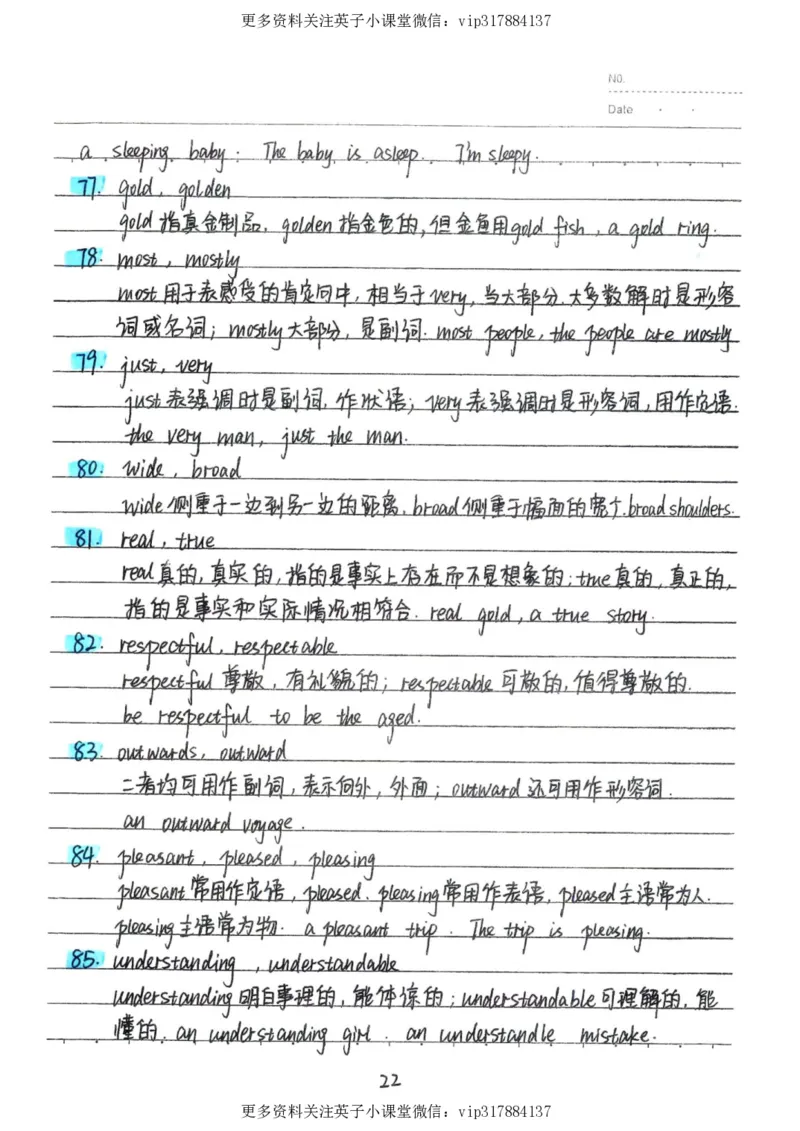 更多资料关注英子小课堂微信：vip317884137
NO.
Date
a sleeping baby. The baby is asleep. I'm sleepy.
77. gold, golden
gold指真金制品, golden指金色的,但金鱼用gold fish, a gold ring.
78. most, mostly
most用于表感受的肯定句中,相当于very,当大部分,大多数解时是形容
词或名词; mostly大部分,是副词. most people, the people are mostly
79. just, very
just表强调时是副词,作状语; very表强调时是形容词,用作定语.
the very man, just the man.
80. wide, broad
wide侧重于一边到另一边的距离, broad侧重于幅面的宽广. broad shoulders.
81. real, true
real真的,真实的,指的是事实上存在而不是想象的; true真的,真正的,
指的是事实和实际情况相符合. real gold, a true story.
82. respectful, respectable
respectful尊敬,有礼貌的; respectable可敬的,值得尊敬的.
be respectful to be the aged.
83. outwards, outward
二者均可用作副词,表示向外,外面; outward还可用作形容词.
an outward voyage.
84. pleasant, pleased, pleasing
pleasant常用作定语, pleased, pleasing常用作表语, pleased主语常为人.
pleasing主语常为物. a pleasant trip. The trip is pleasing.
85. understanding, understandable
understanding明白事理的,能体谅的; understandable可理解的,能
懂的. an understanding girl. an understandle mistake.
22
更多资料关注英子小课堂微信：vip317884137